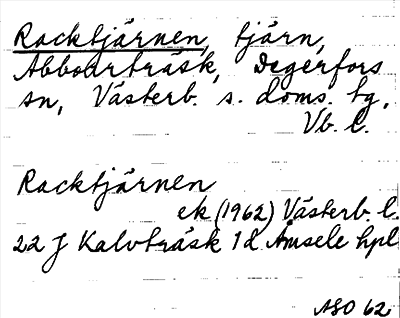 Racktjärnen, tjärn,
Abborrträsk, Degerfors
sn, Västerb. s. doms. tg,
Vb. l.
Racktjärnen
ek (1962) Västerb. l.
22 J Kalvträsk 1d Åmsele hpl
ASO 62